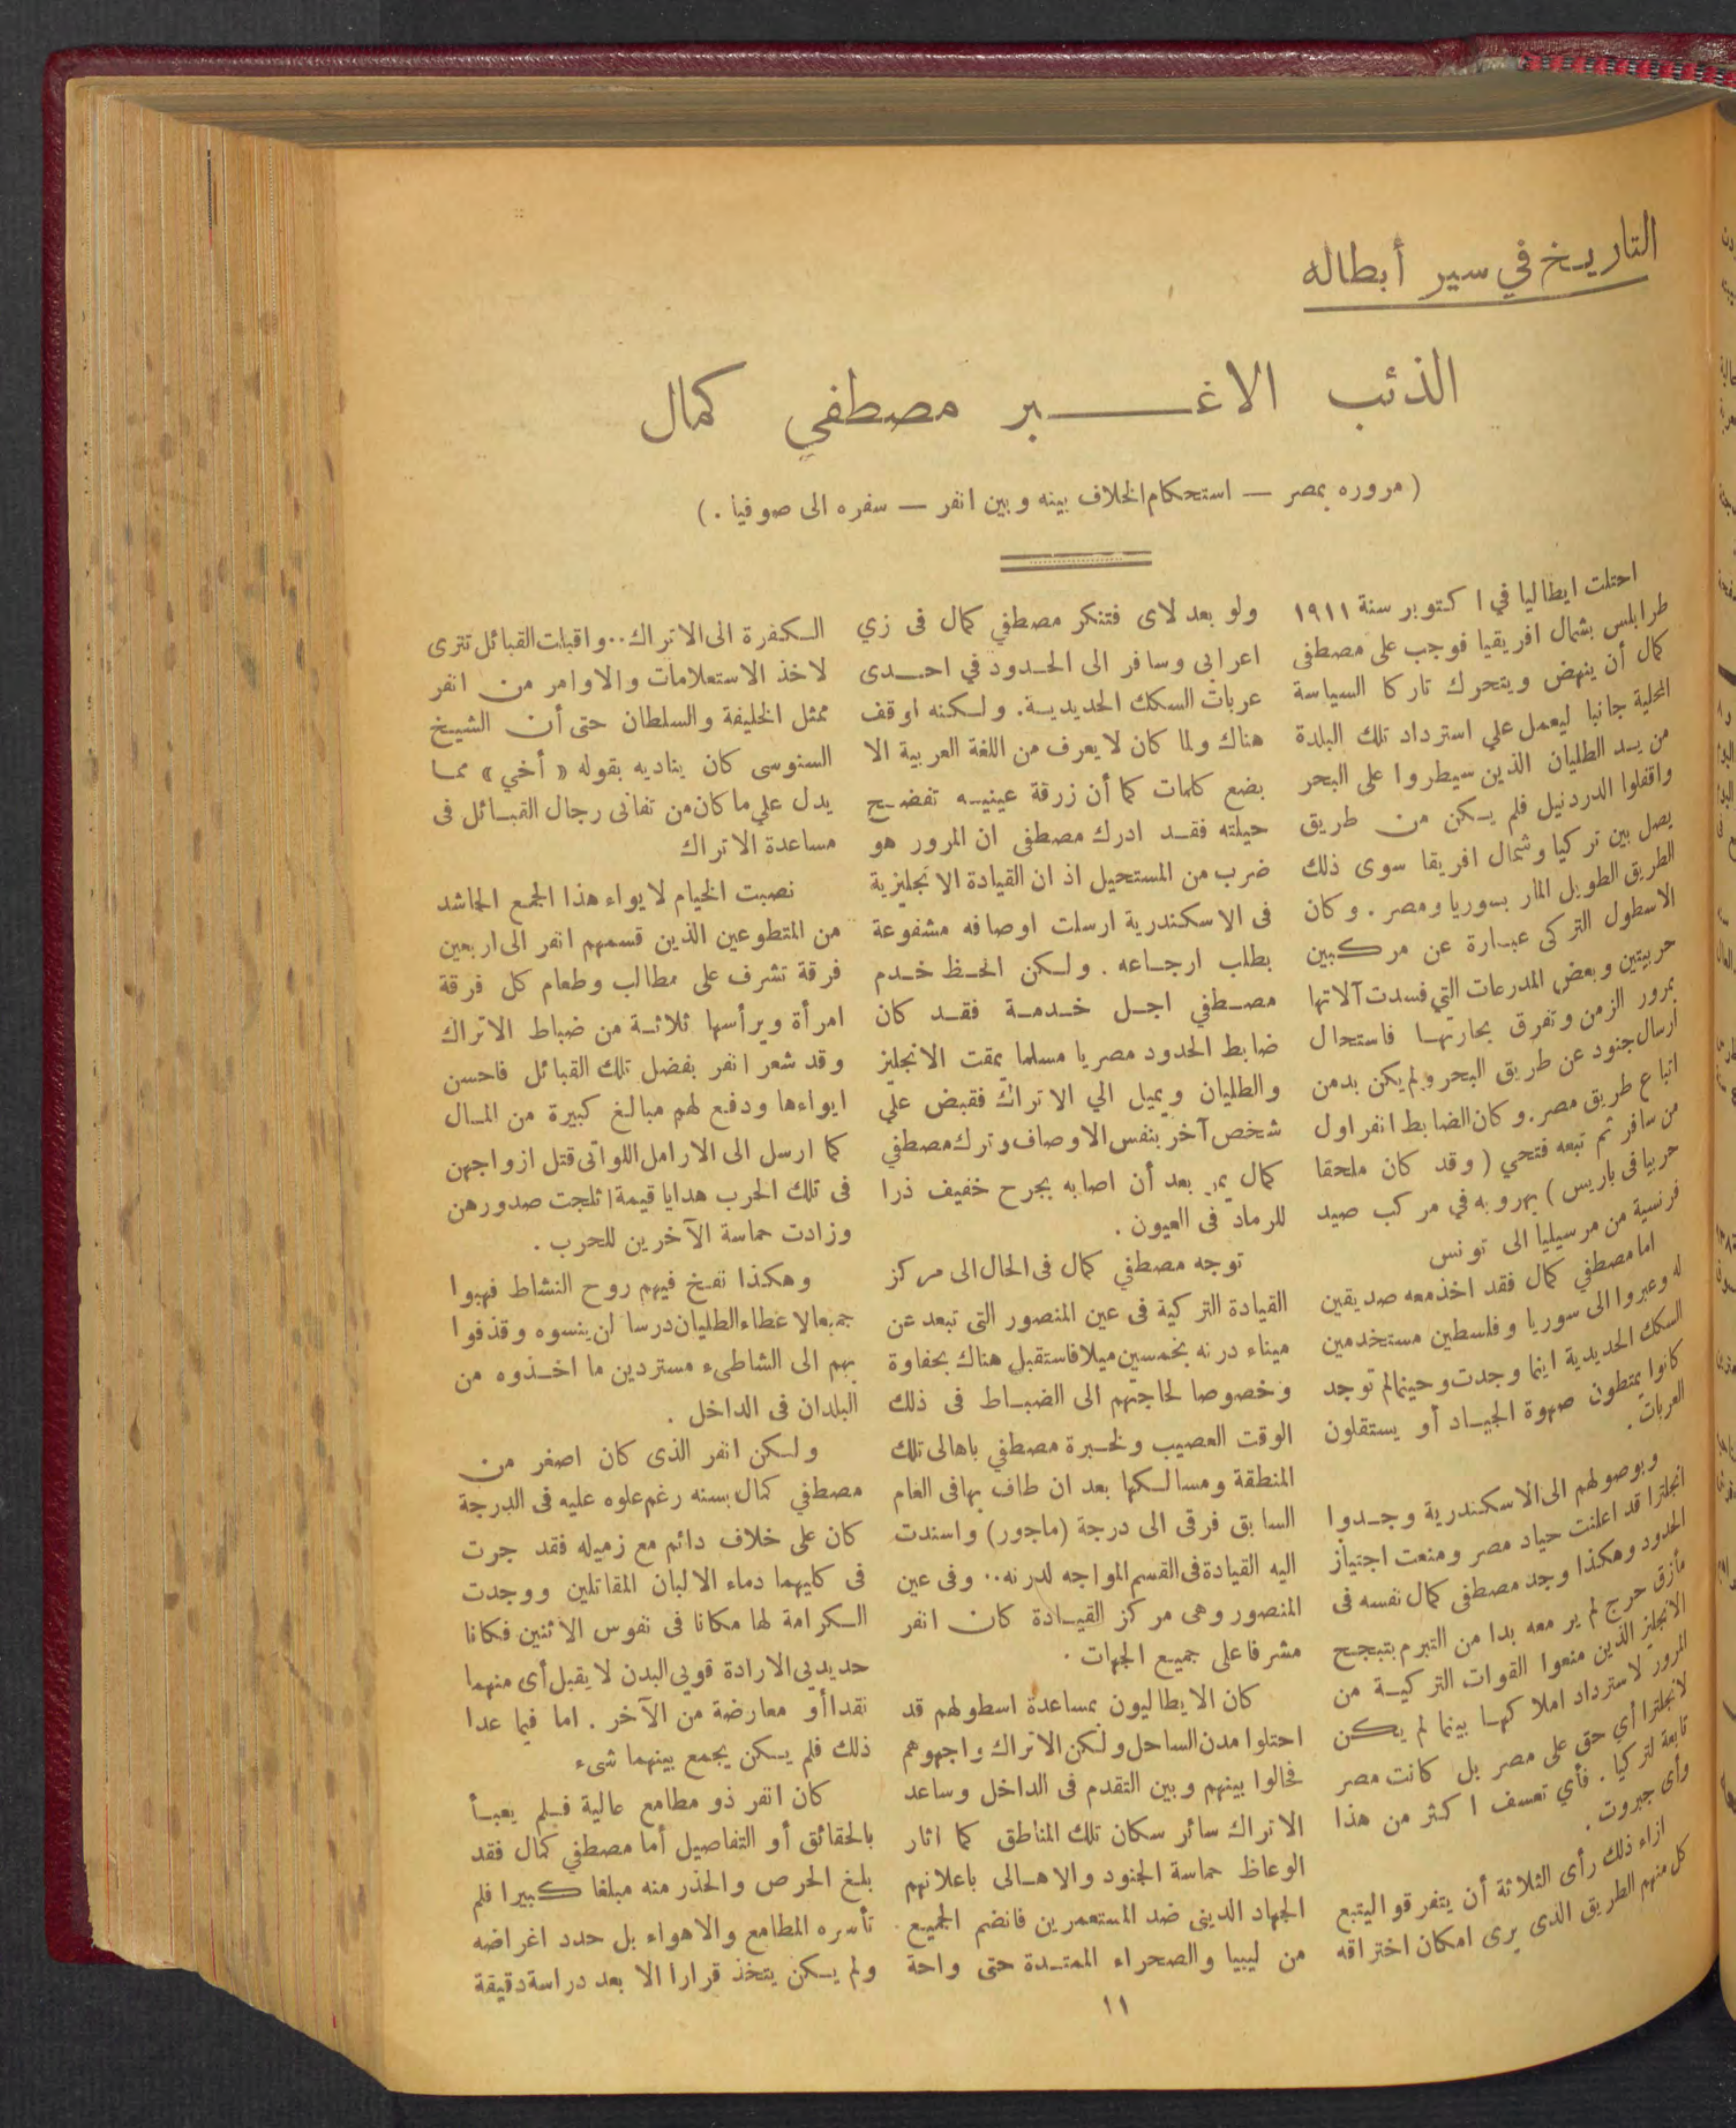 التاريخ في سير أبطاله
الذئب الاغبر مصطفي كمال
( مروره بمصر — استحكام الخلاف بينه وبين انفر — سفره الى صوفيا . )
احتلت ايطاليا في اكتوبر سنة ١٩١١
طرابلس بشمال افريقيا فوجب على مصطفى
كمال أن ينهض ويتحرك تاركا السياسة
المحلية جانبا ليعمل علي استرداد تلك البلدة
من يد الطليان الذين سيطروا على البحر
واقفلوا الدردنيل فلم يكن من طريق
يصل بين تركيا وشمال افريقا سوى ذلك
الطريق الطويل المار بسوريا ومصر . وكان
الاسطول التركى عبارة عن مركبين
حربيتين وبعض المدرعات التي فسدت آلاتها
بمرور الزمن وتفرق بحارتها فاستحال
ارسال جنود عن طريق البحر ولم يكن بد من
اتباع طريق مصر . وكان الضابط انفر اول
من سافر ثم تبعه فتحي ( وقد كان ملحقا
حربيا فى باريس ) بهروبه في مركب صيد
فرنسية من مرسيليا الى تونس
اما مصطفي كمال فقد اخذ معه صديقين
له وعبروا الى سوريا وفلسطين مستخدمين
السكك الحديدية اينما وجدت وحينما لم توجد
كانوا يمتطون صهوة الجياد أو يستقلون
العربات .
وبوصولهم الى الاسكندرية وجدوا
انجلترا قد اعلنت حياد مصر ومنعت اجتياز
الحدود وهكذا وجد مصطفى كمال نفسه فى
مأزق حرج لم ير معه بدا من التبرم بتبجح
الانجليز الذين منعوا القوات التركية من
المرور لاسترداد املاكها بينما لم يكن
لانجلترا أي حق على مصر بل كانت مصر
تابعة لتركيا . فأي تعسف اكثر من هذا
وأى جبروت .
ازاء ذلك رأى الثلاثة أن يتفرقوا ليتبع
كل منهم الطريق الذى يرى امكان اختراقه
ولو بعد لاى فتنكر مصطفي كمال فى زي
اعرابى وسافر الى الحدود في احدى
عربات السكك الحديدية. ولكنه اوقف
هناك ولما كان لا يعرف من اللغة العربية الا
بضع كلمات كما أن زرقة عينيه تفضح
حيلته فقد ادرك مصطفى ان المرور هو
ضرب من المستحيل اذ ان القيادة الانجليزية
فى الاسكندرية ارسلت اوصافه مشفوعة
بطلب ارجاعه . ولكن الحظ خدم
مصطفي اجل خدمة فقد كان
ضابط الحدود مصريا مسلما يمقت الانجليز
والطليان ويميل الي الاتراك فقبض علي
شخص آخر بنفس الاوصاف وترك مصطفي
كمال يمر بعد أن اصابه بجرح خفيف ذرا
للرماد فى العيون .
توجه مصطفي كمال فى الحال الى مركز
القيادة التركية فى عين المنصور التى تبعد عن
ميناء درنه بخمسين ميلا فاستقبل هناك بحفاوة
وخصوصا لحاجتهم الى الضباط فى ذلك
الوقت العصيب ولخبرة مصطفي باهالى تلك
المنطقة ومسالكها بعد ان طاف بها فى العام
السابق فرقى الى درجة (ماجور) واسندت
اليه القيادة فى القسم المواجه لدرنه .. وفى عين
المنصور وهى مركز القيادة كان انفر
مشرفا على جميع الجهات .
كان الايطاليون بمساعدة اسطولهم قد
احتلوا مدن الساحل ولكن الاتراك واجهوهم
فحالوا بينهم وبين التقدم فى الداخل وساعد
الاتراك سائر سكان تلك المناطق كما اثار
الوعاظ حماسة الجنود والاهالى باعلانهم
الجهاد الدينى ضد المستعمرين فانضم الجميع
من ليبيا والصحراء الممتدة حتى واحة
الكفرة الى الاتراك .. واقبلت القبائل تترى
لاخذ الاستعلامات والاوامر من انفر
ممثل الخليفة والسلطان حتى أن الشيخ
السنوسى كان يناديه بقوله « أخي » مما
يدل علي ما كان من تفانى رجال القبائل فى
مساعدة الاتراك
نصبت الخيام لايواء هذا الجمع الحاشد
من المتطوعين الذين قسمهم انفر الى اربعين
فرقة تشرف على مطالب وطعام كل فرقة
امرأة ويرأسها ثلاثة من ضباط الاتراك
وقد شعر انفر بفضل تلك القبائل فاحسن
ايواءها ودفع لهم مبالغ كبيرة من المال
كما ارسل الى الارامل اللواتى قتل ازواجهن
فى تلك الحرب هدايا قيمة اثلجت صدورهن
وزادت حماسة الآخرين للحرب .
وهكذا تفخ فيهم روح النشاط فهبوا
جميعا لاعطاء الطليان درسا لن ينسوه وقذفوا
بهم الى الشاطىء مستردين ما اخذوه من
البلدان فى الداخل .
ولكن انفر الذى كان اصغر من
مصطفي كمال بسنه رغم علوه عليه فى الدرجة
كان على خلاف دائم مع زميله فقد جرت
فى كليهما دماء الالبان المقاتلين ووجدت
الكرامة لها مكانا فى نفوس الاثنين فكانا
حديديى الارادة قويى البدن لا يقبل أى منهما
نقدا أو معارضة من الآخر . اما فيما عدا
ذلك فلم يكن يجمع بينهما شىء
كان انفر ذو مطامع عالية فلم يعبأ
بالحقائق أو التفاصيل أما مصطفي كمال فقد
بلغ الحرص والحذر منه مبلغا كبيرا فلم
تأسره المطامع والاهواء بل حدد اغراضه
ولم يكن يتخذ قرارا الا بعد دراسة دقيقة
١١